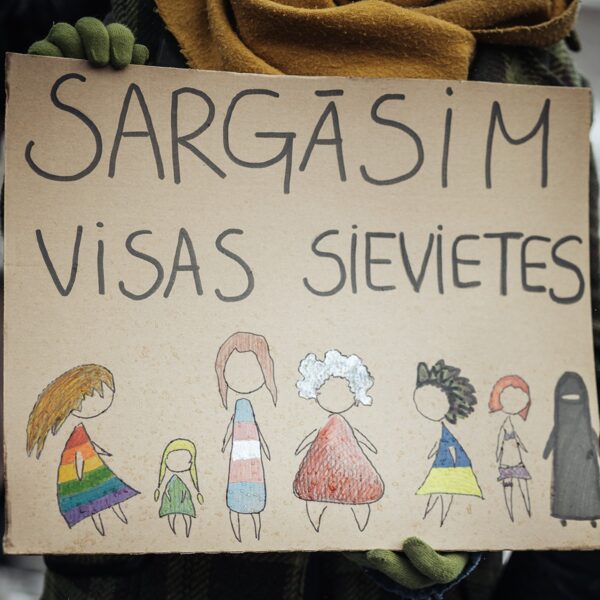 SARGĀSIM
VISAS SIEVIETES